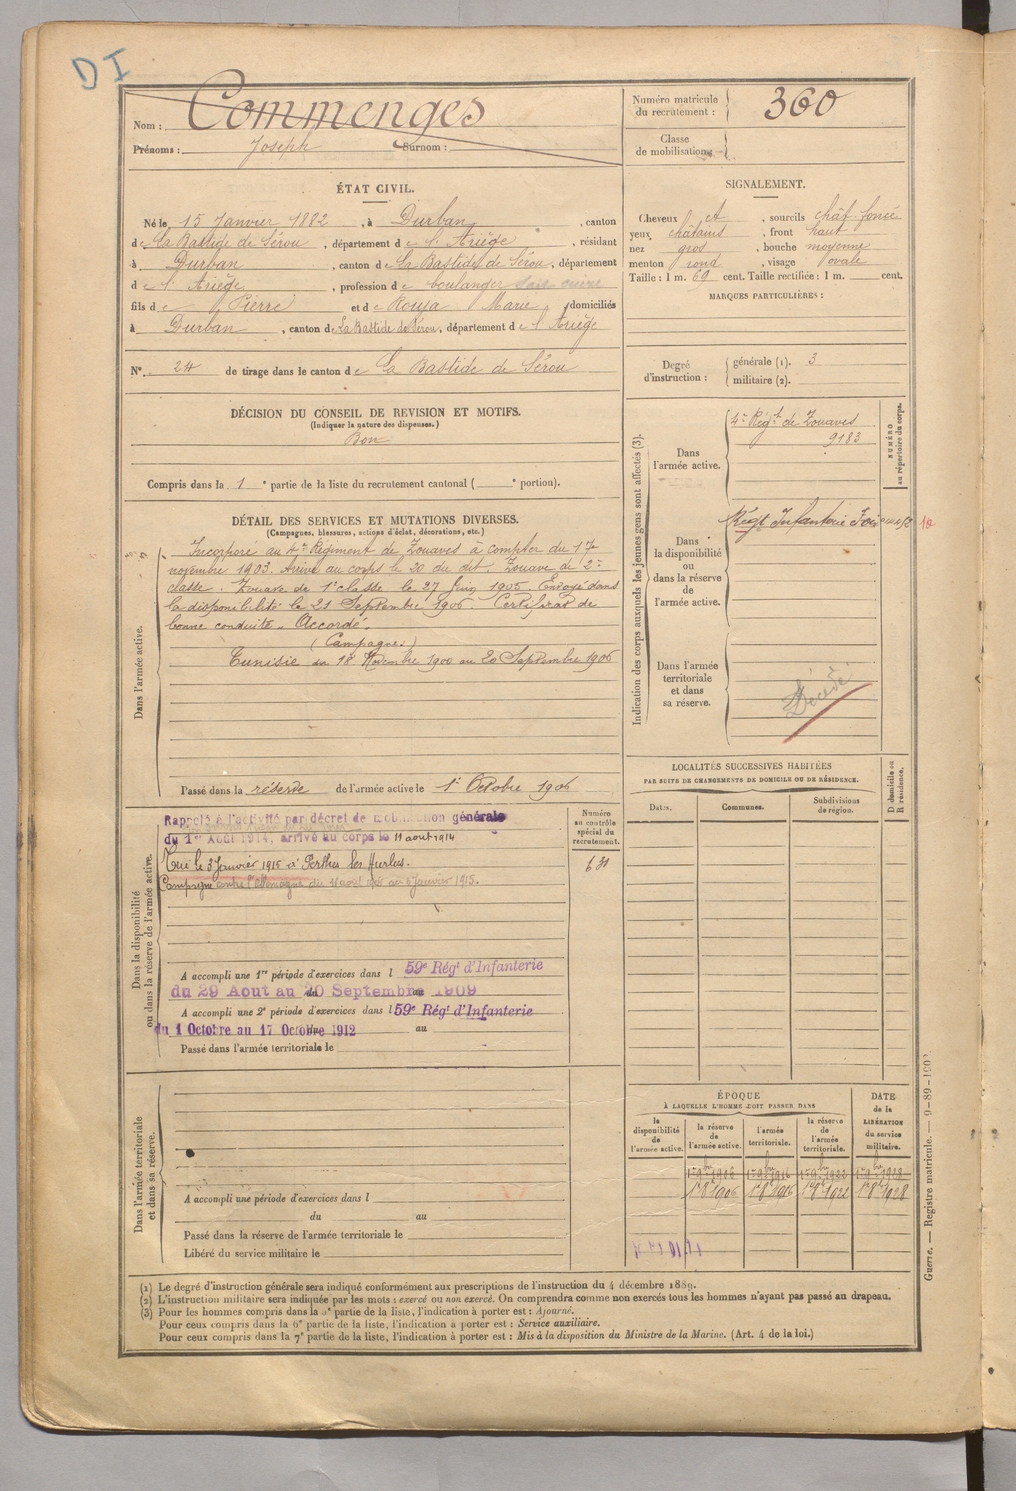 DI
Nom : Commenges
Prénoms : Joseph Surnom :
Numéro matricule du recrutement : 360
Classe de mobilisation
ÉTAT CIVIL.
Né le 15 Janvier 1882, à Durban, canton
de La Bastide de Sérou, département de l'Ariège, résidant
à Durban, canton de La Bastide de Sérou, département
de l'Ariège, profession de boulanger
fils de Pierre et de Rouja Marie, domiciliés
à Durban, canton de La Bastide de Sérou, département de l'Ariège
N° 24 de tirage dans le canton de La Bastide de Sérou
SIGNALEMENT.
Cheveux et, sourcils chât. foncé
yeux châtains, front haut
nez gros, bouche moyenne
menton rond, visage ovale
Taille : 1 m. 69 cent. Taille rectifiée : 1 m. cent.
MARQUES PARTICULIÈRES :
Degré d'instruction : générale (1). 3
militaire (2).
DÉCISION DU CONSEIL DE REVISION ET MOTIFS.
(Indiquer la nature des dispenses.)
Bon
Compris dans la 1e partie de la liste du recrutement cantonal ( e portion).
DÉTAIL DES SERVICES ET MUTATIONS DIVERSES.
(Campagnes, blessures, actions d'éclat, décorations, etc.)
Dans l'armée active.
Incorporé au 4e Régiment de Zouaves à compter du 17
novembre 1903. Arrivé au corps le 20 du dit. Zouave de 2e
classe. Zouave de 1e classe le 27 Juin 1905. Envoyé dans
la disponibilité le 21 Septembre 1906 Certificat de
bonne conduite. Accordé.
(Campagne.)
Tunisie du 18 Novembre 1900 au 20 Septembre 1906
Passé dans la réserve de l'armée active le 1er Octobre 1906
Indication des corps auxquels les jeunes gens sont affectés (3).
NUMÉRO au répertoire du corps.
Dans l'armée active.
4e Régt de Zouaves
9183
Dans la disponibilité ou dans la réserve de l'armée active.
Régt Infanterie
Dans l'armée territoriale et dans sa réserve.
Décédé
LOCALITÉS SUCCESSIVES HABITÉES
PAR SUITE DE CHANGEMENTS DE DOMICILE OU DE RÉSIDENCE.
Dates. Communes. Subdivisions de région. D domicile ou R résidence.
Dans la disponibilité ou dans la réserve de l'armée active.
Numéro au contrôle spécial du recrutement.
Rappelé à l'activité par décret de mobilisation générale
du 1er Août 1914, arrivé au corps le 11 aout 1914
Tué le 3 Janvier 1915 à Perthes les Hurlus.
Campagne contre l'Allemagne du 11 aout 1914 au 3 Janvier 1915.
A accompli une 1re période d'exercices dans l 59e Régt d'Infanterie
du 29 Aout au 20 Septembre 1909
A accompli une 2e période d'exercices dans l 59e Régt d'Infanterie
du 1 Octobre au 17 Octobre 1912 au
Passé dans l'armée territoriale le
Dans l'armée territoriale et dans sa réserve.
A accompli une période d'exercices dans l
du au
Passé dans la réserve de l'armée territoriale le
Libéré du service militaire le
ÉPOQUE
À LAQUELLE L'HOMME DOIT PASSER DANS
DATE de la LIBÉRATION du service militaire.
la disponibilité de l'armée active.
la réserve de l'armée active.
l'armée territoriale.
la réserve de l'armée territoriale.
1er 9bre 1906 1er 9bre 1916 1er 9bre 1922 1er 9bre 1928
1er 8bre 1906 1er 8bre 1916 1er 8bre 1922 1er 8bre 1928
(1) Le degré d'instruction générale sera indiqué conformément aux prescriptions de l'instruction du 4 décembre 1889.
(2) L'instruction militaire sera indiquée par les mots : exercé ou non exercé. On comprendra comme non exercés tous les hommes n'ayant pas passé au drapeau.
(3) Pour les hommes compris dans la 5e partie de la liste, l'indication à porter est : Ajourné.
Pour ceux compris dans la 6e partie de la liste, l'indication à porter est : Service auxiliaire.
Pour ceux compris dans la 7e partie de la liste, l'indication à porter est : Mis à la disposition du Ministre de la Marine. (Art. 4 de la loi.)
Guerre. — Registre matricule. — 9-89-1902